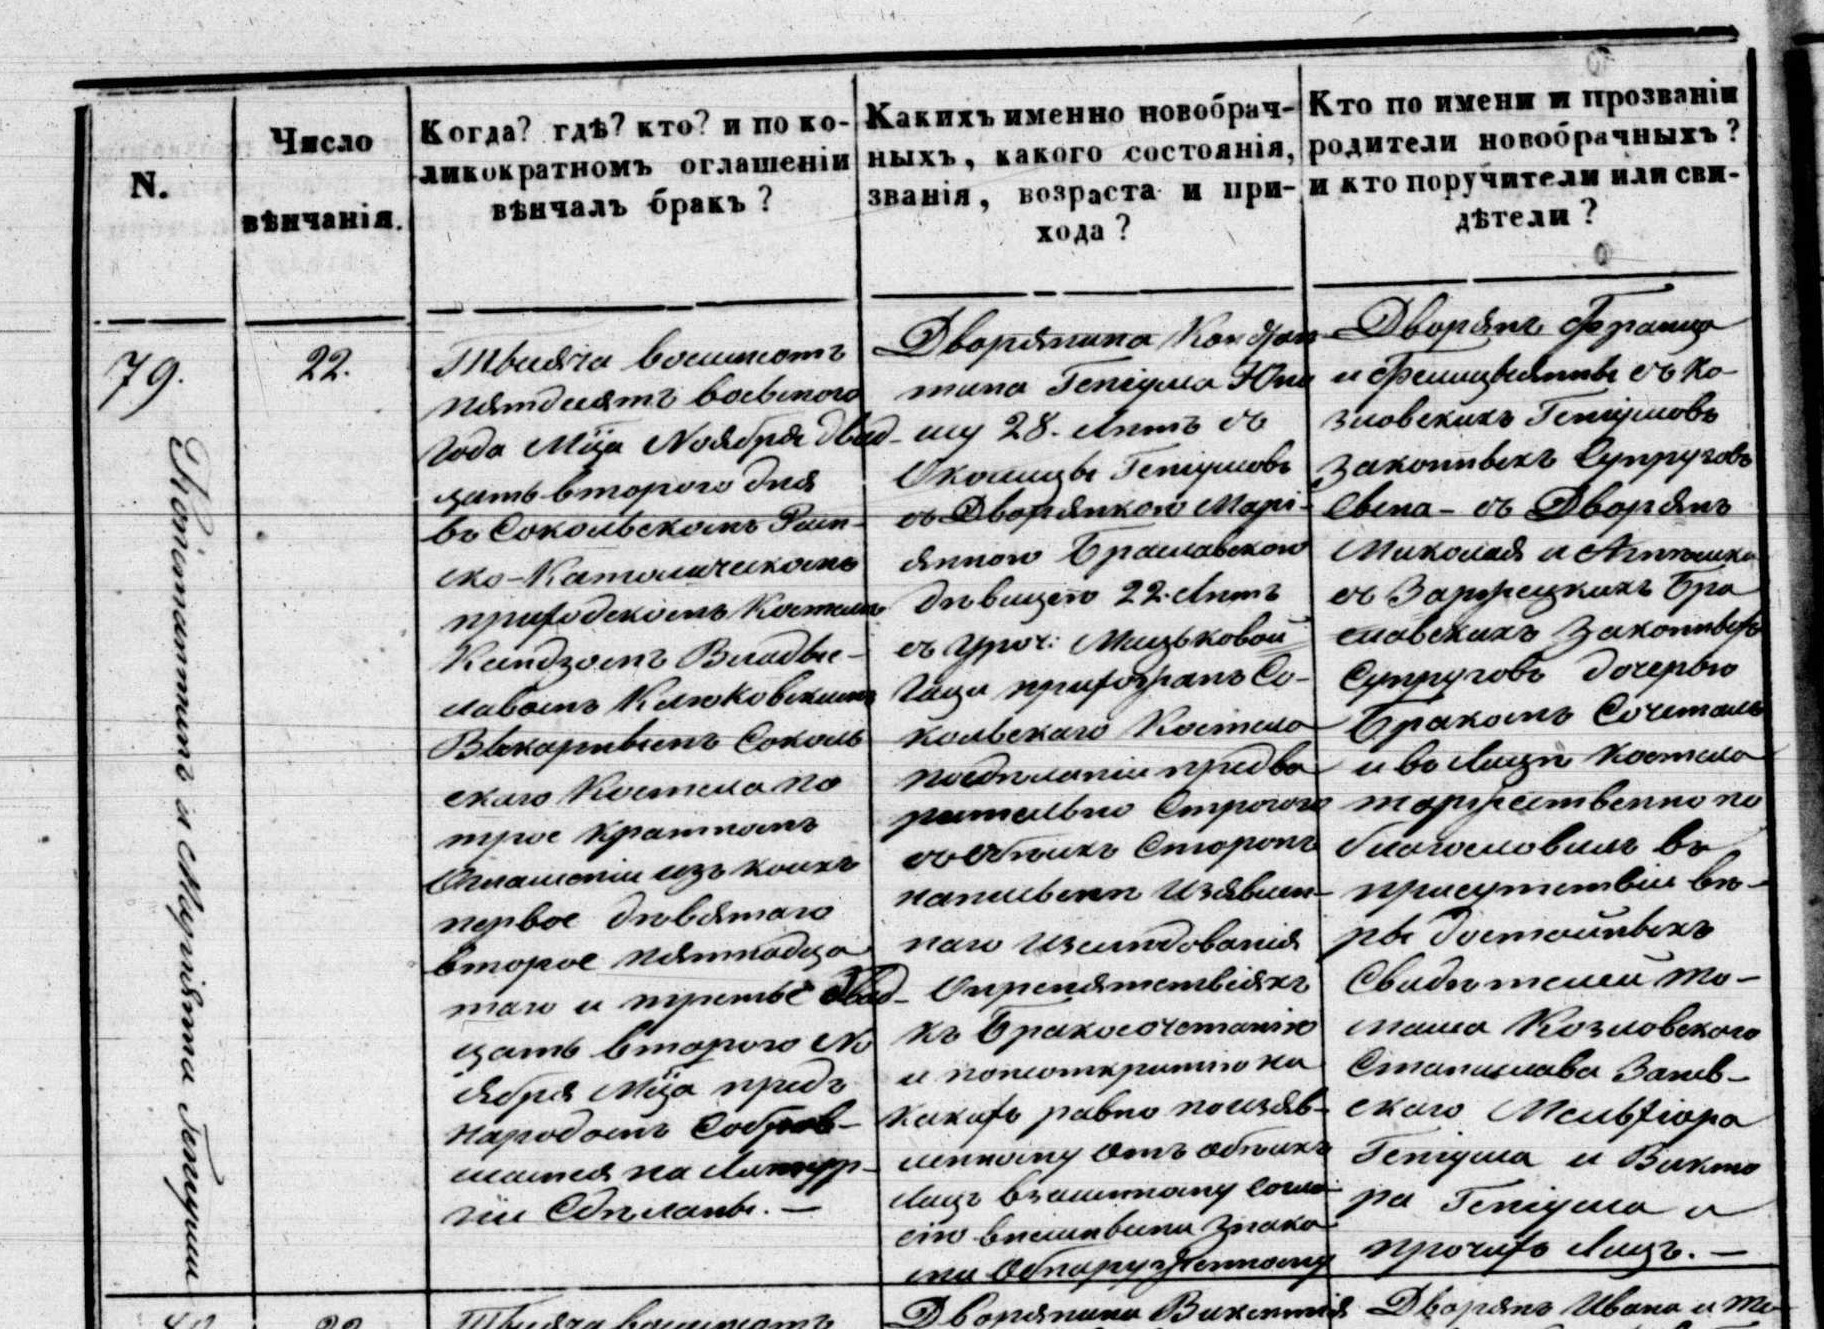 N.
Число
вѣнчанія.
Когда? гдѣ? кто? и по ко-
ликократномъ оглашеніи
вѣнчалъ бракъ?
Какихъ именно новобрач-
ныхъ, какого состоянія,
званія, возраста и при-
хода?
Кто по имени и прозваніи
родители новобрачныхъ?
и кто поручители или сви-
дѣтели?
79.
Константинъ и Маріянна
22.
Тысяча восемсотъ
пятдесятъ восьмого
года Мца Ноября двад-
цать второго дня
въ Сокольскомъ Рим-
ско-Католическомъ
приходскомъ Костелѣ
Ксендзомъ Влады-
славомъ
Викарнымъ Соколь
скаго Костела по
трое кратномъ
Оглашеніи изъ коихъ
первое девятаго
второе пятнадца
таго и третье двад-
цать второго Но
ября Мца предъ
народомъ Собрав-
шимся на Литур-
гіи Сдѣланы. —
Дворянина Констан
тина Геніуша Юно
шу 28. лѣтъ съ
Околицы Геніушовъ
съ Дворянкою Марі-
янною Браславскою
дѣвицею 22. лѣтъ
съ Уроч: Мицьковой
Гаци прихожанъ Со-
кольскаго Костела
по сдѣланіи предва
рительно Строгого
съ обѣихъ Сторонъ
на письмѣ Изъявлен-
наго Изслѣдованія
О препятствіяхъ
къ Бракосочетанію
и по неоткрытію на
какихъ равно по изъяв-
ленному отъ обѣихъ
Лицъ взаимному согла-
сію внешными Знака
ми Обнаруженному
Дворянъ Франца
и Фелиціянны съ Ко-
зловскихъ Геніушовъ
Законныхъ Супруговъ
Сына — съ Дворянъ
Николая и
съ Заржецкихъ Бра
славскихъ Законныхъ
Супруговъ дочерью
Бракомъ Сочеталъ
и въ Лицѣ Костела
торжественно по
благословилъ въ
присутствіи вѣ-
ры достойныхъ
Свидѣтелей То-
маша Козловского
Станислава
скаго Мельхіора
Геніуша и Викто
ра Геніуша и
прочихъ Лицъ. —
22
Тысяча восемсотъ
Дворянина Викентія
Дворянъ Ивана и